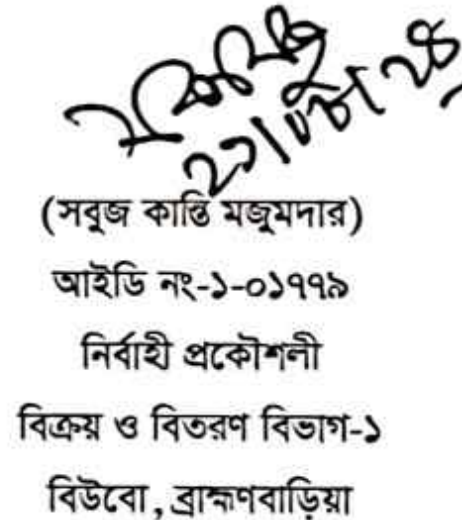 (সবুজ কান্তি মজুমদার)
আইডি নং-১-০১৭৭৯
নির্বাহী প্রকৌশলী
বিক্রয় ও বিতরণ বিভাগ-১
বিউবো, ব্রাহ্মণবাড়িয়া